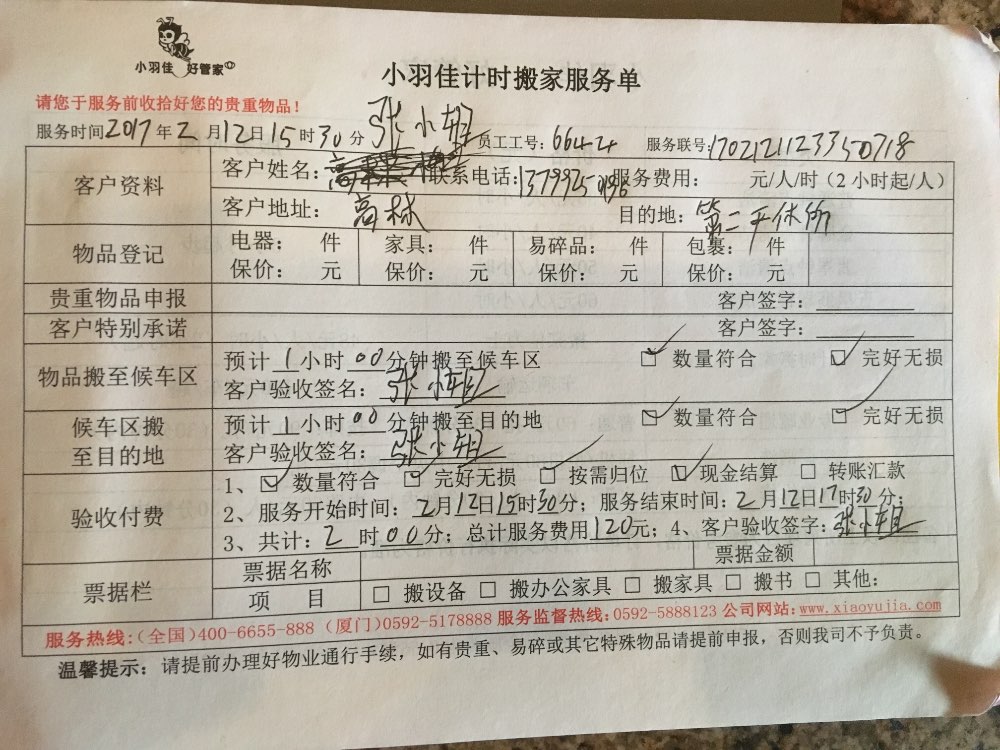 小羽佳 好管家
小羽佳计时搬家服务单
请您于服务前收拾好您的贵重物品！
服务时间2017年2月12日15时30分 张小姐 员工工号：6644 服务联号：
客户资料 客户姓名： 联系电话： 服务费用： 元/人/时（2小时起/人）
客户地址：高林 目的地：第二干休所
物品登记 电器： 件 家具： 件 易碎品： 件 包裹： 件
保价： 元 保价： 元 保价： 元 保价： 元
贵重物品申报 客户签字：
客户特别承诺 客户签字：
物品搬至候车区 预计1小时00分钟搬至候车区 ☑ 数量符合 ☑ 完好无损
客户验收签名：张小姐
候车区搬至目的地 预计1小时00分钟搬至目的地 ☑ 数量符合 ☑ 完好无损
客户验收签名：张小姐
验收付费 1、☑ 数量符合 ☑ 完好无损 ☑ 按需归位 ☑ 现金结算 □ 转账汇款
2、服务开始时间：2月12日15时30分；服务结束时间：2月12日17时30分；
3、共计：2时00分；总计服务费用120元；4、客户验收签字：张小姐
票据栏 票据名称 票据金额
项 目 □ 搬设备 □ 搬办公家具 □ 搬家具 □ 搬书 □ 其他：
服务热线：（全国）400-6655-888（厦门）0592-5178888 服务监督热线：0592-5888123 公司网站：www.xiaoyujia.com
温馨提示：请提前办理好物业通行手续，如有贵重、易碎或其它特殊物品请提前申报，否则我司不予负责。